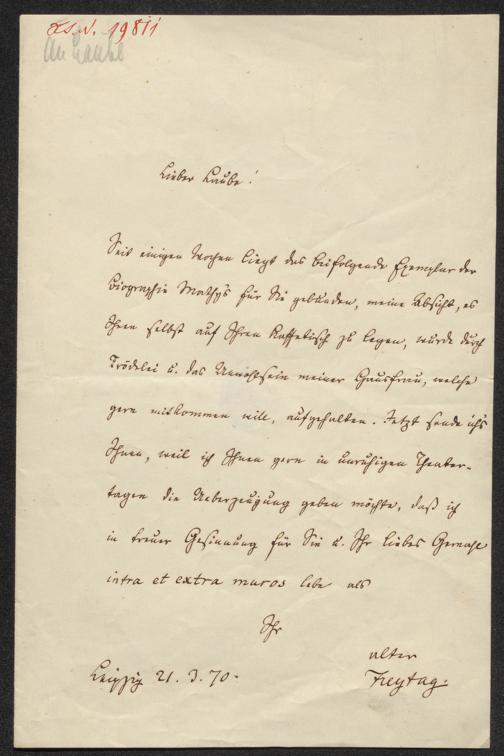 I.N. 19811
An Laube
Lieber Laube!
Seit einigen Wochen liegt das beifolgende Exemplar der
Biographie Mathy's für Sie gebunden, meine Absicht, es
Ihnen selbst auf Ihren Kaffetisch zu legen, wurde durch
Trödelei u. das Unwohlsein meiner Hausfrau, welche
gern mitkommen will, aufgehalten. Jetzt sende ich's
Ihnen, weil ich Ihnen gern in unruhigen Theater-
tagen die Ueberzeugung geben möchte, daß ich
in treuer Gesinnung für Sie u. Ihr liebes Gemahl
intra et extra muros lebe als
Ihr
alter
Leipzig 21. 3. 70. Freytag.